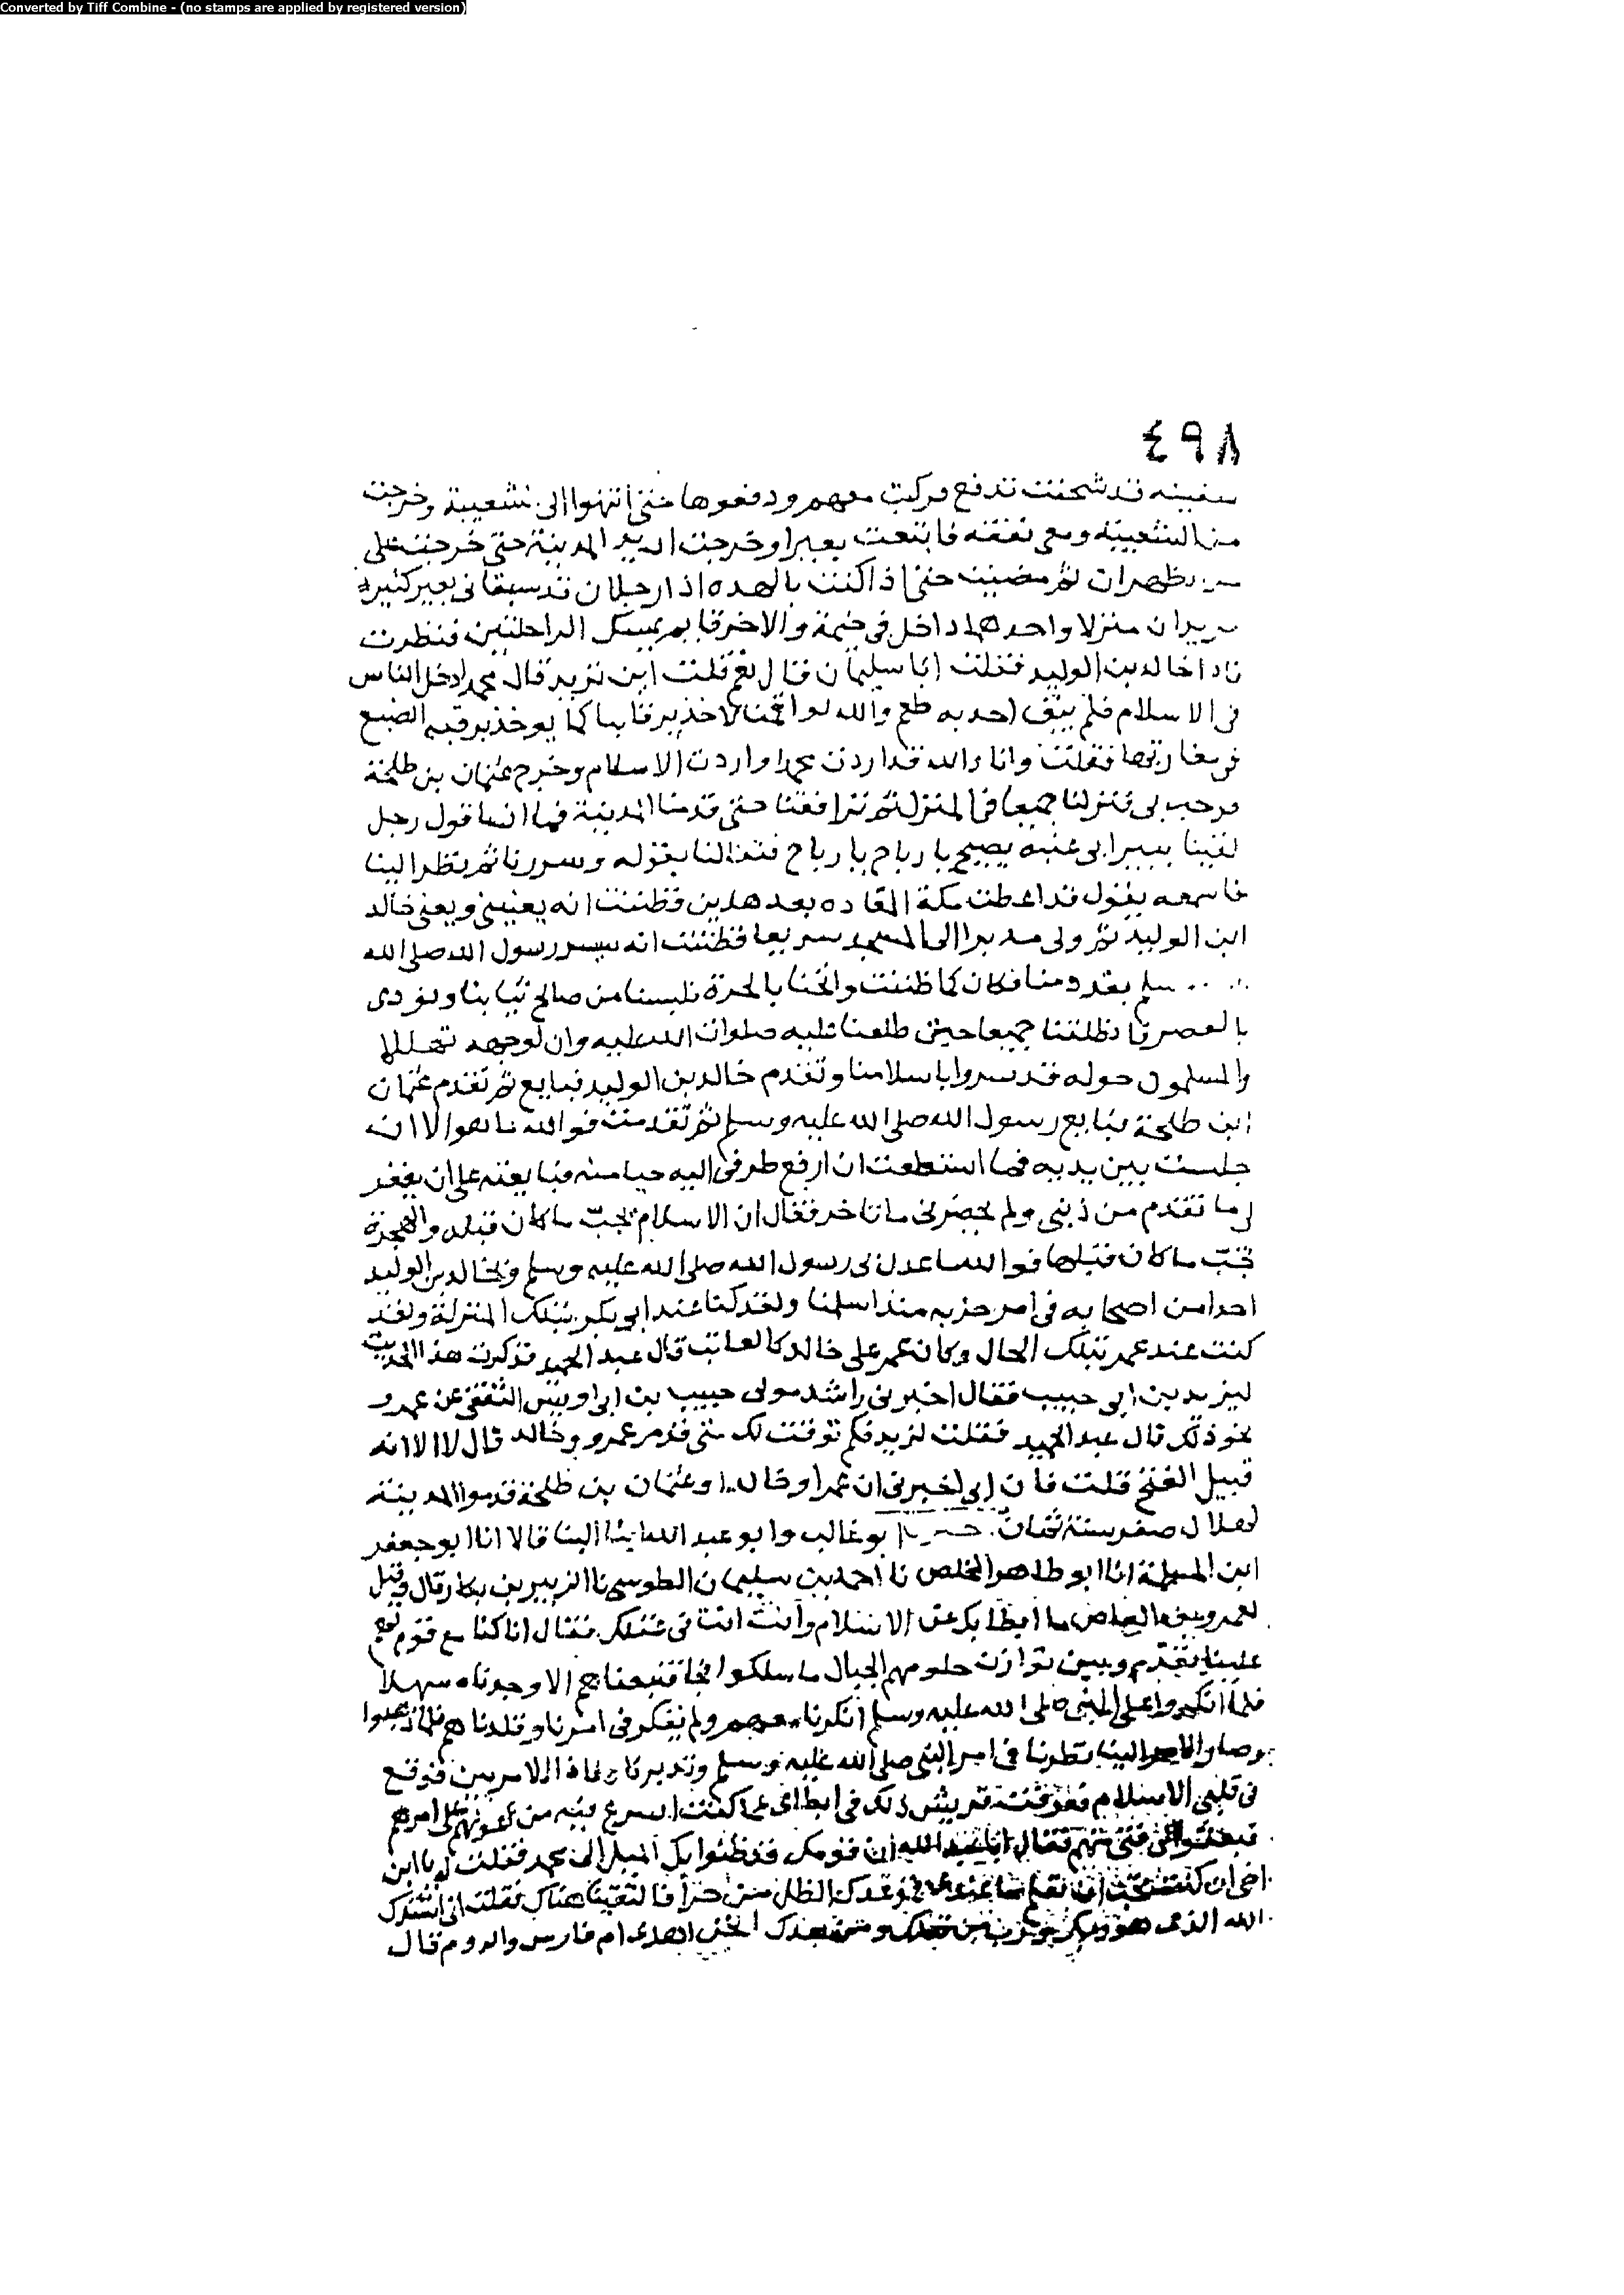 Converted by Tiff Combine - (no stamps are applied by registered version)
٤٩٨
سفينه قد شحنت تدفع فركبت معهم ودفعوها حتى انتهوا الى شعيبة وخرجت
من الشعيبة ومعى نفقة فابتعت بعيرا وخرجت اريد المدينة حتى خرجت على
الظهران ثم مضيت حتى اذا كنت بالهده اذا رجلان قد سبقانى بغير كثير
يريدان منزلا واحدهما داخل فى خيمة والاخر قايم يمسك الراحلتين فنظرت
فاذا خالد بن الوليد فقلت ابا سليمان قال نعم قلت اين تريد قال محمدا دخل الناس
فى الاسلام فلم يبق احد به طمع والله لو اقمنا لاخذ برقابنا كما يوخذ برقبة الضبع
فى مغارتها فقلت وانا والله قد اردت محمدا واردت الاسلام وخرج عثمان بن طلحة
فرحب بى فنزلنا جميعا فى المنزل ثم ترافقنا حتى قدمنا المدينة فما انسا قول رجل
لقينا ببير ابى عنبه يصيح يا رباح يا رباح فتفالنا بقوله وسررنا ثم نظر الينا
فاسمعه يقول قد اعطت مكة المقاده بعد هذين فظننت انه يعنينى ويعنى خالد
ابن الوليد ثم ولى مدبرا الى المسجد سريعا فظننت انه يبشر رسول الله صلى الله
سلم بقدومنا فكان كما ظننت وانخنا بالحرة فلبسنا من صالح ثيابنا ونودى
بالعصر فانطلقنا جميعا حتى طلعنا عليه صلوات الله عليه وان لوجهه تهللا
والمسلمون حوله قد سروا باسلامنا وتقدم خالد بن الوليد فبايع ثم تقدم عثمان
ابن طلحة فبايع رسول الله صلى الله عليه وسلم ثم تقدمت فوالله ما هو الا ان
جلست بين يديه فما استطعت ان ارفع طرفى اليه حيا منه فبايعته على ان يغفر
لى ما تقدم من ذنبى ولم يحضرنى ما تاخر فقال ان الاسلام يجبّ ما كان قبله والهجرة
تجبّ ما كان قبلها فوالله ما عدل بى رسول الله صلى الله عليه وسلم وبخالد بن الوليد
احدا من اصحابه فى امر حزبه منذ اسلمنا ولقد كنا عند ابى بكر بتلك المنزلة ولقد
كنت عند عمر بتلك الحال وكان عمر على خالد كالعاتب قال عبد الحميد فذكرت هذا الحديث
ليزيد بن ابى حبيب فقال اخبرنى راشد مولى حبيب بن ابى اويس الثقفى عن عمرو
نحو ذلك قال عبد الحميد فقلت ليزيد فلم توقت لك متى قدم عمرو وخالد قال لا الا انه
قبيل الفتح قلت فان ابى اخبرنى ان عمرا وخالدا وعثمان بن طلحة قدموا المدينة
لهلال صفر سنة ثمان. ابو غالب وابو عبد الله ابنا البنا قالا انا ابو جعفر
ابن المسلمة انا ابو طاهر المخلص نا احمد بن سليمان الطوسى نا الزبير بن بكار قال وقيل
لعمرو بن العاص ما ابطا بك عن الاسلام وانت انت فى عقلك فقال انا كنا مع قوم لهم
علينا تقدم وسن توازت حلومهم الجبال ما سلكوا فجا فتبعناهم الا وجدناه سهلا
فلما انكروا على النبى صلى الله عليه وسلم انكرنا معهم ولم نفكر فى امرنا وقلدناهم فلما ذهبوا
وصار الامر الينا نظرنا فى امر النبى صلى الله عليه وسلم وتدبرنا فاذا الامر بين فوقع
فى قلبى الاسلام فعرفت قريش ذلك فى ابطاى عما كنت اسرع فيه من عونهم على امرهم
فبعثوا الى فتى منهم فقال ابا عبد الله ان قومك قد ظنوا بك الميل الى محمد فقلت له يا ابن
اخى ان كنت تحب ان تعلم ما عندى فموعدك الظل من حرا فالتقينا هناك فقلت انى انشدك
الله الذى هو ربك ورب من قبلك ومن بعدك انحن اهدى ام فارس والروم قال